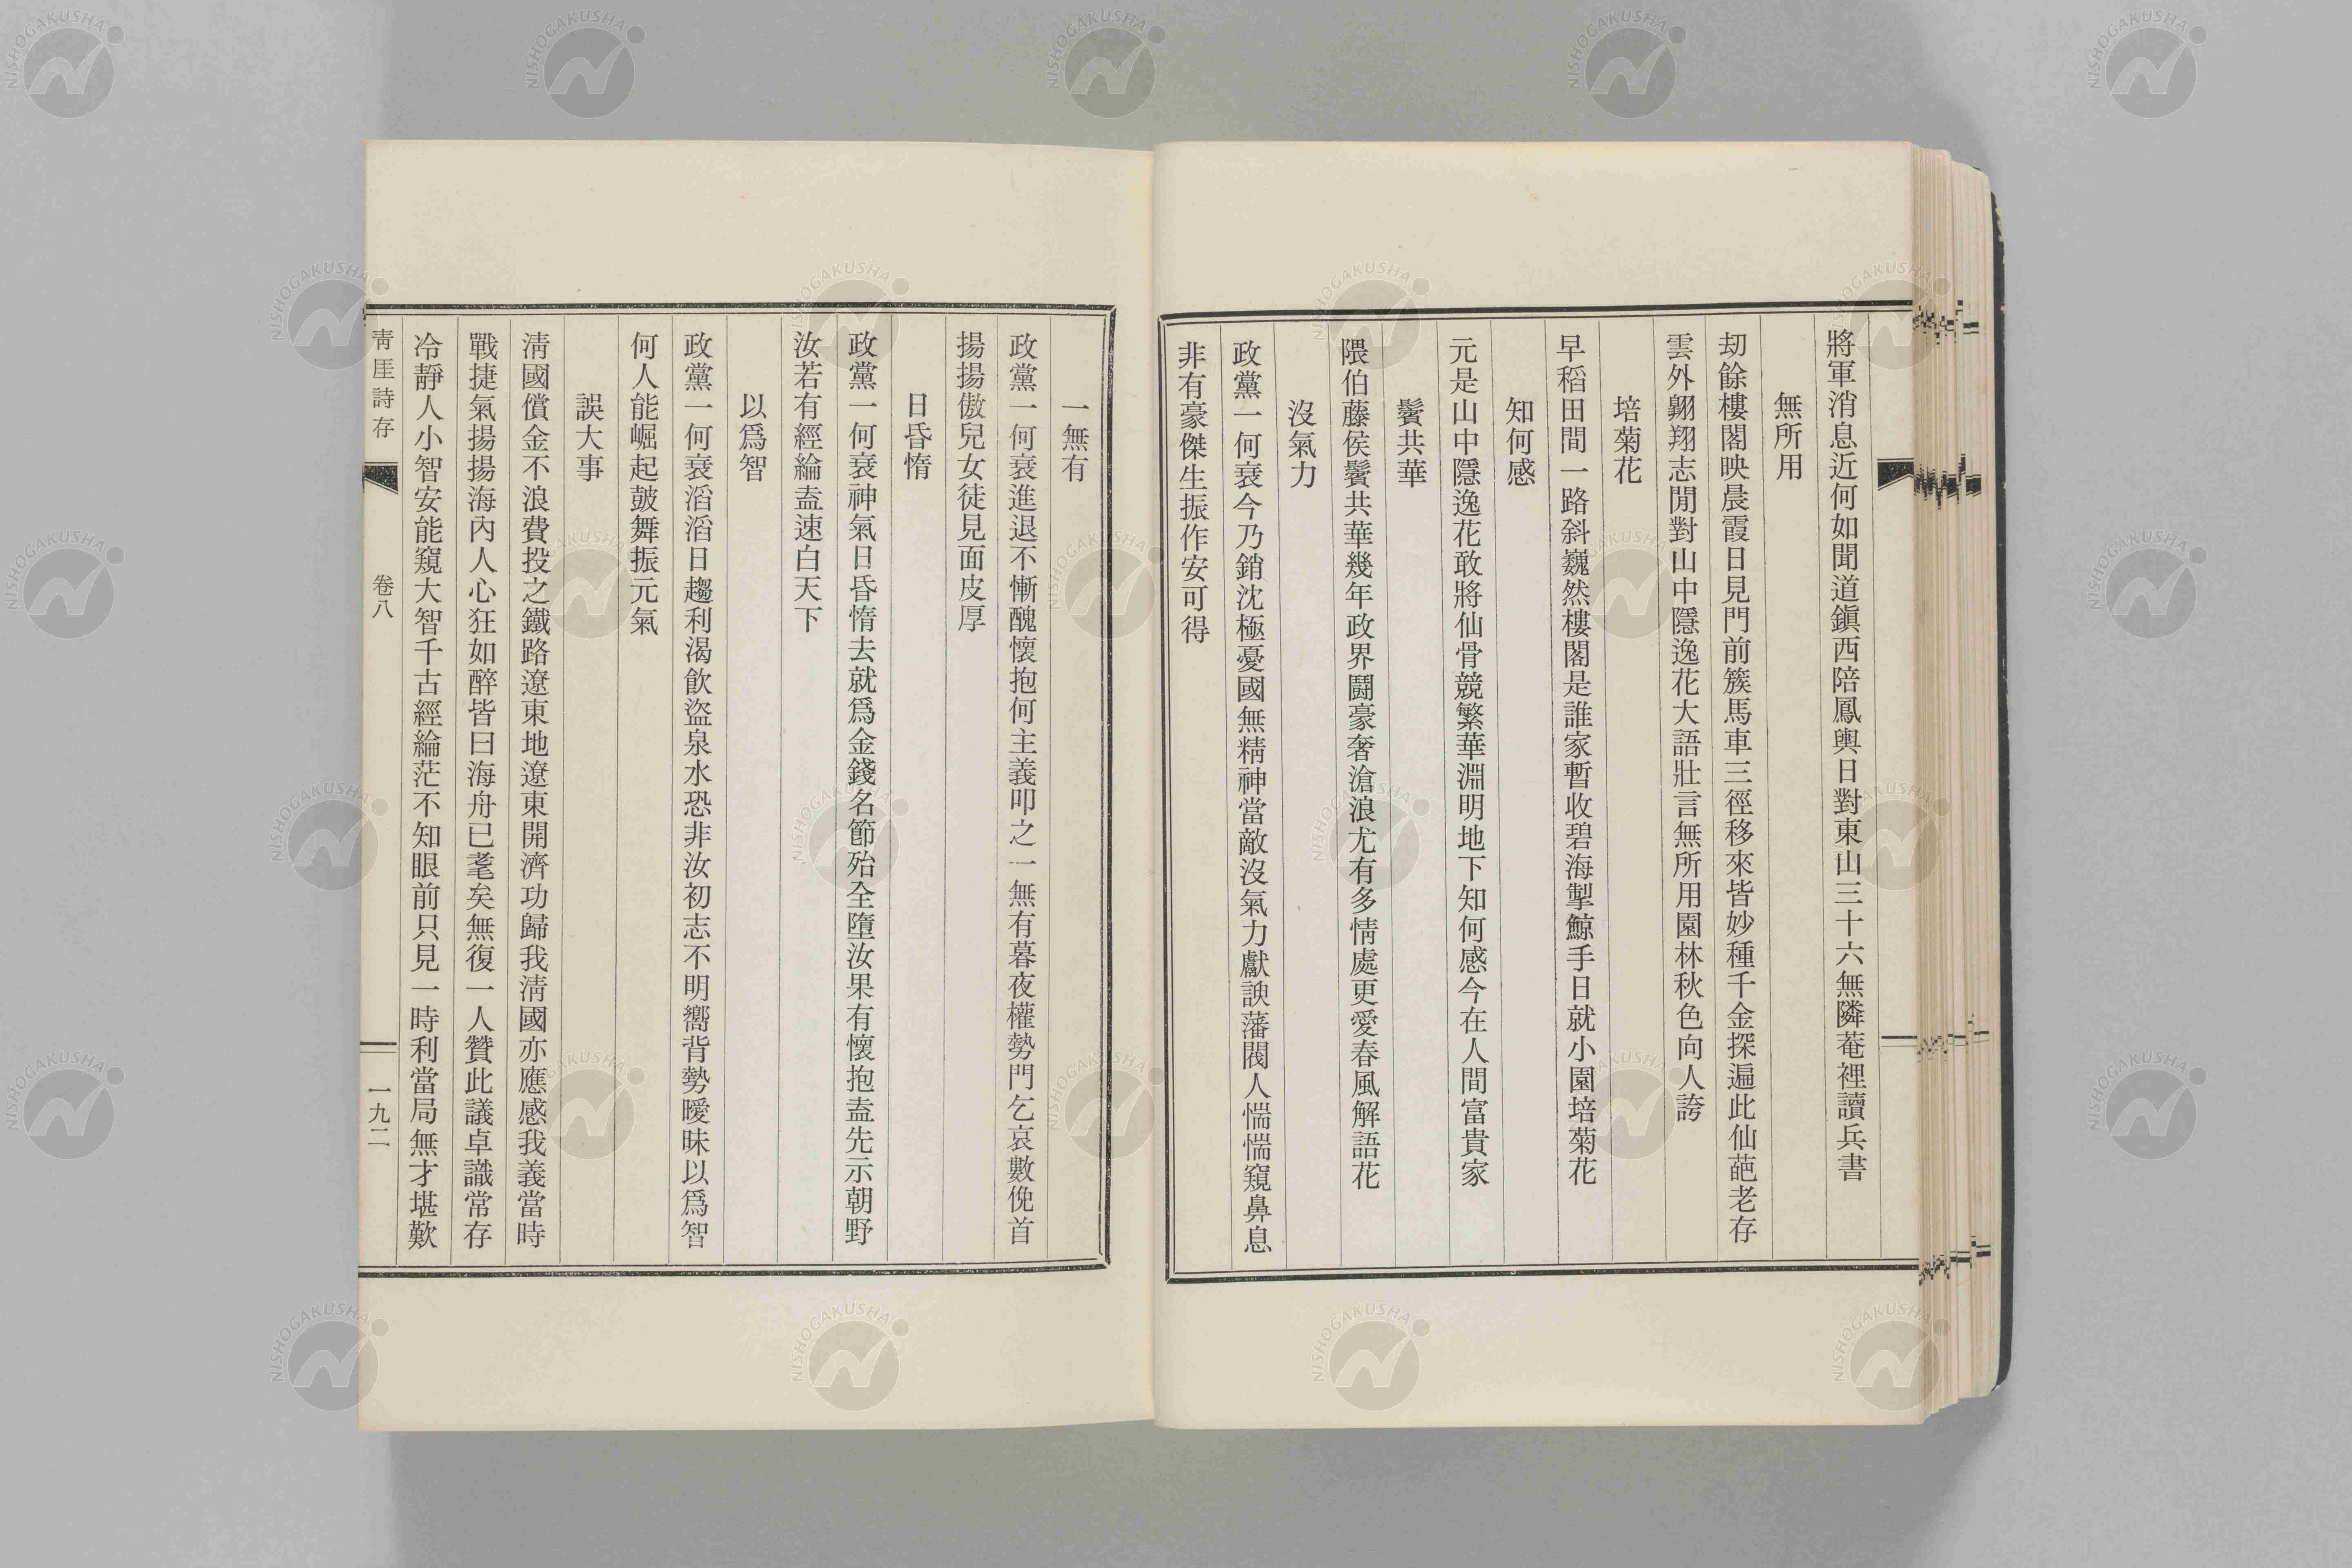 將軍消息近何如聞道鎭西陪鳳輿日對東山三十六無隣菴裡讀兵書
無所用
刧餘樓閣映晨霞日見門前簇馬車三徑移來皆妙種千金探遍此仙葩老存
雲外翺翔志閒對山中隱逸花大語壯言無所用園林秋色向人誇
培菊花
早稻田間一路斜巍然樓閣是誰家暫收碧海掣鯨手日就小園培菊花
知何感
元是山中隱逸花敢將仙骨競繁華淵明地下知何感今在人間富貴家
鬢共華
隈伯藤侯鬢共華幾年政界鬪豪奢滄浪尤有多情處更愛春風解語花
沒氣力
政黨一何衰今乃銷沈極憂國無精神當敵沒氣力獻諛藩閥人惴惴窺鼻息
非有豪傑生振作安可得
一無有
政黨一何衰進退不慚醜懷抱何主義叩之一無有暮夜權勢門乞哀數俛首
揚揚傲兒女徒見面皮厚
日昏惰
政黨一何衰神氣日昏惰去就爲金錢名節殆全墮汝果有懷抱盍先示朝野
汝若有經綸盍速白天下
以爲智
政黨一何衰滔滔日趨利渴飮盜泉水恐非汝初志不明嚮背勢曖昧以爲智
何人能崛起鼓舞振元氣
誤大事
淸國償金不浪費投之鐵路遼東地遼東開濟功歸我淸國亦應感我義當時
戰捷氣揚揚海內人心狂如醉皆曰海舟已耄矣無復一人贊此議卓識常存
冷靜人小智安能窺大智千古經綸茫不知眼前只見一時利當局無才堪歎
靑厓詩存
卷八
一九二
NISHOGAKUSHA